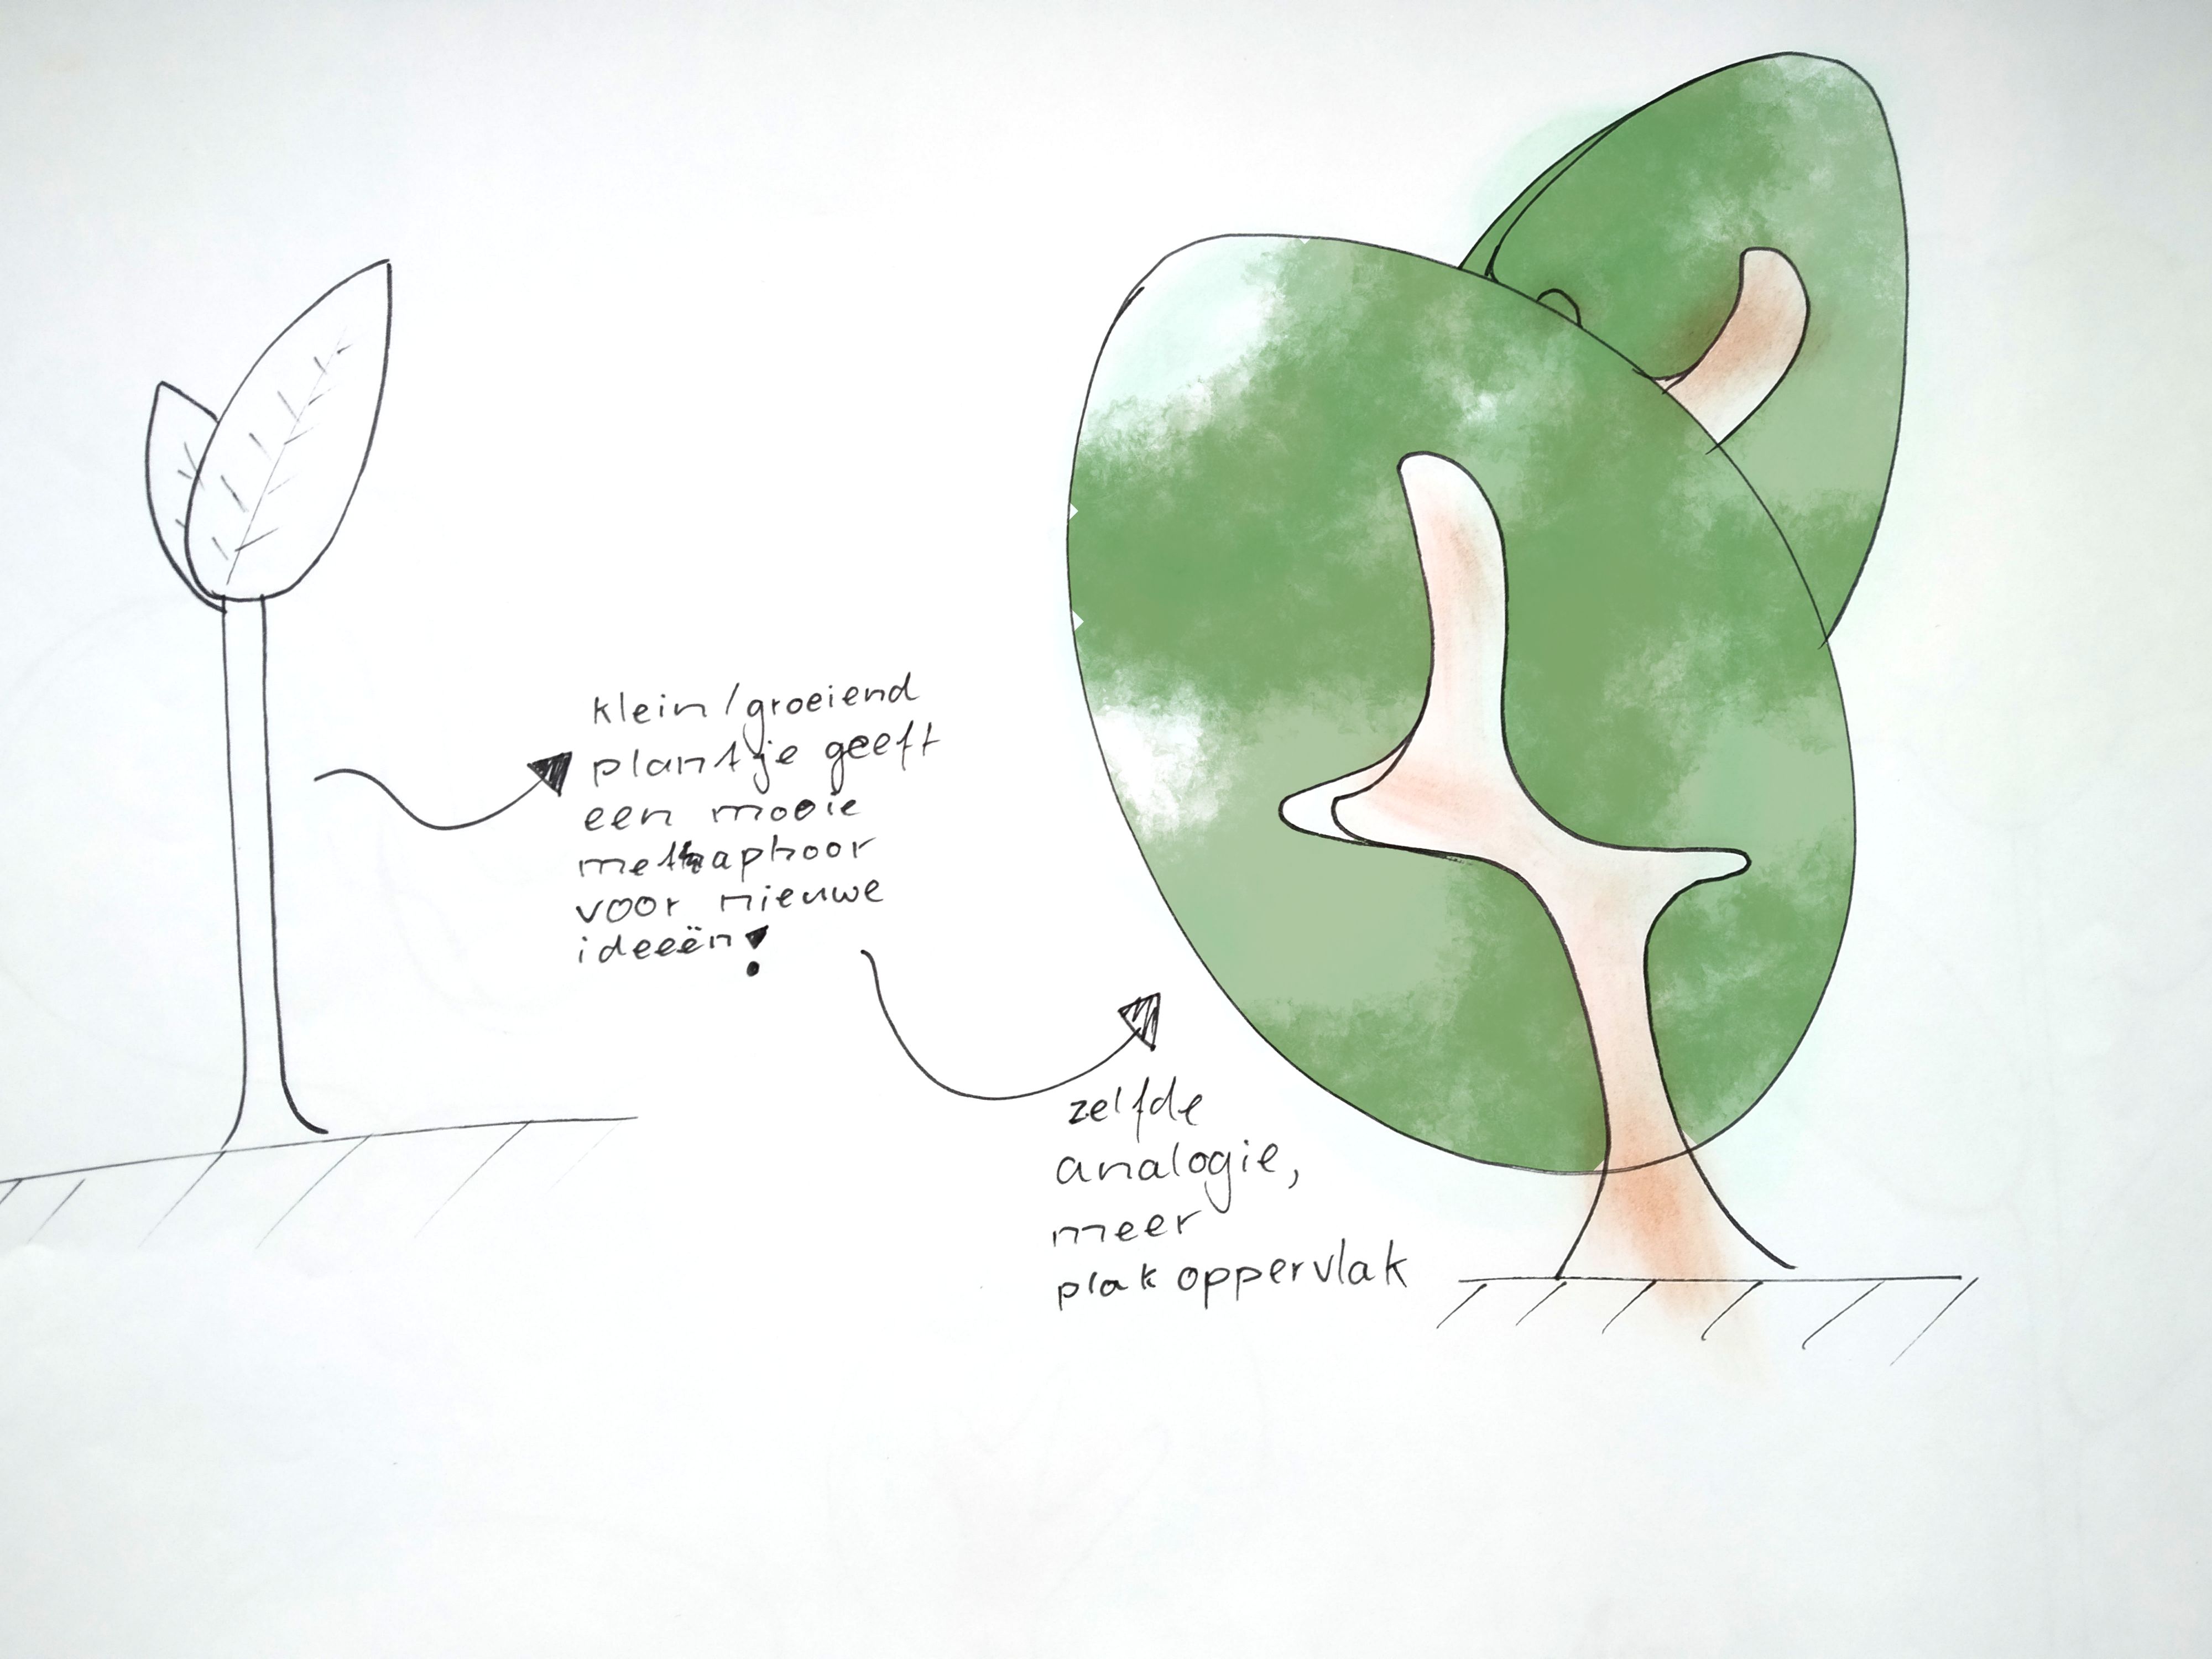 klein/groeiend
plantje geeft
een mooie
metaphoor
voor nieuwe
ideeën!
zelfde
analogie,
meer
plak oppervlak